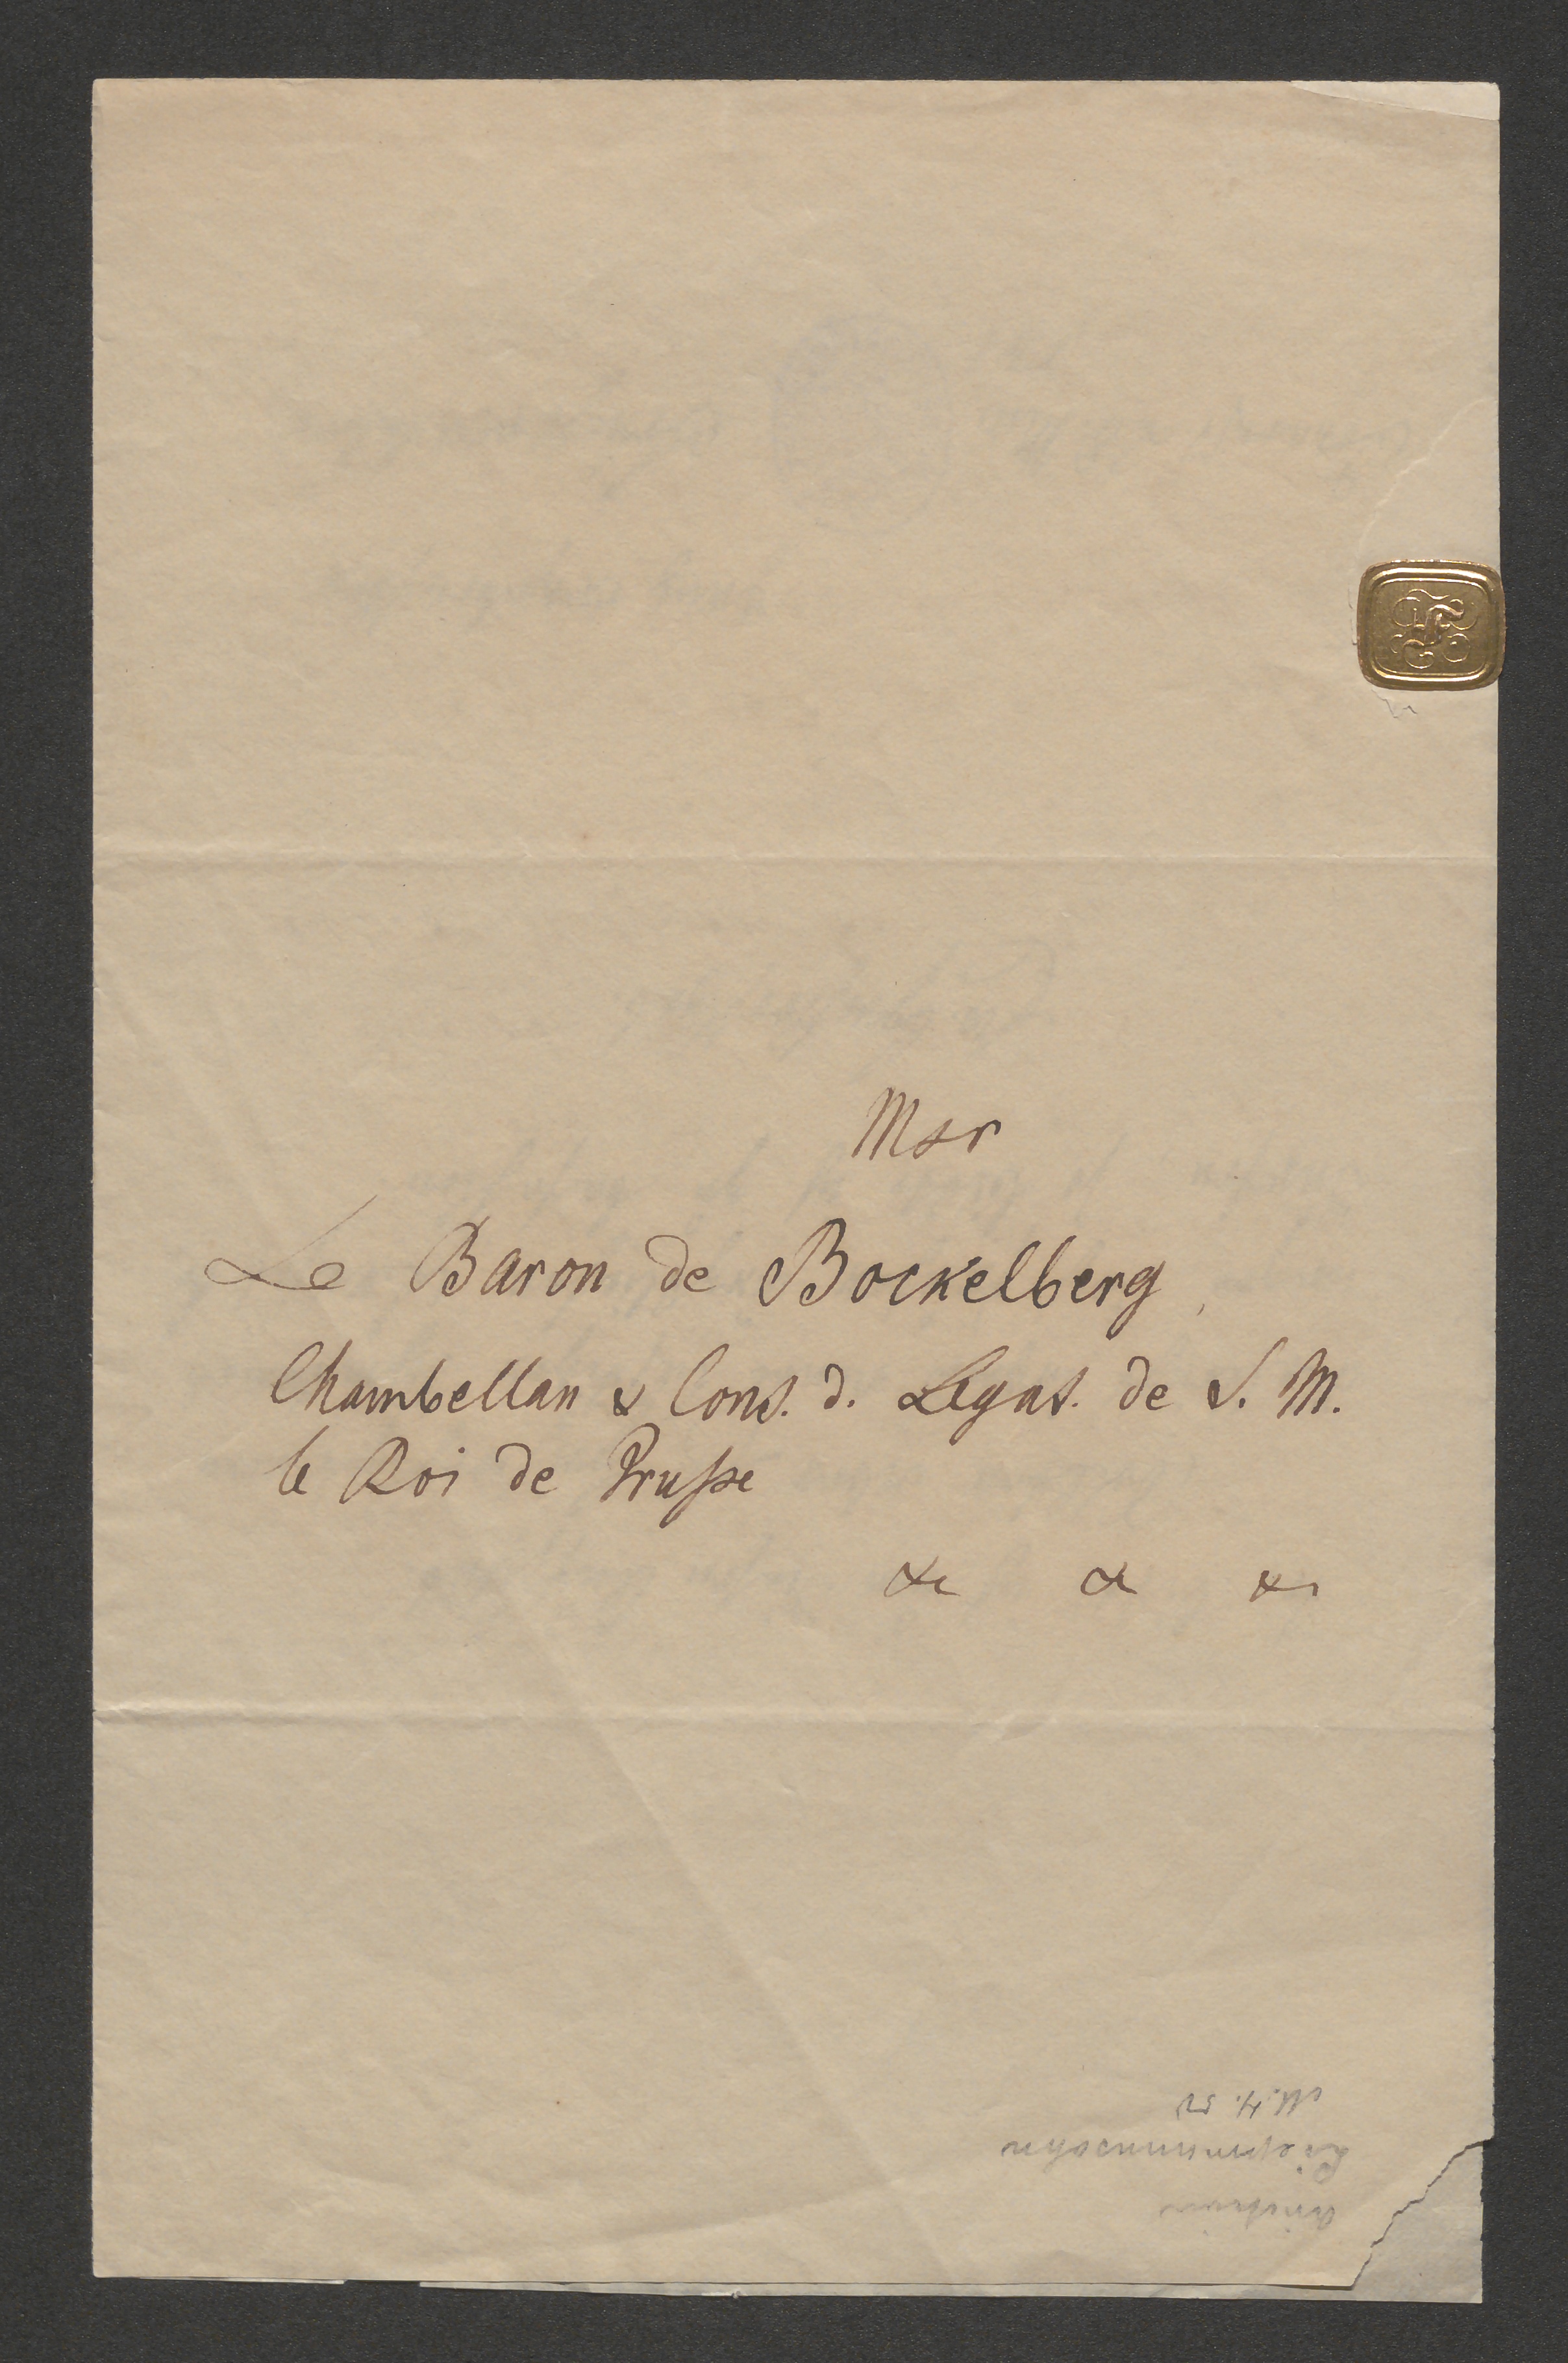 Msr
Le Baron de Bockelberg,
Chambellan & Cons. d. Legat. de S. M.
le Roi de Prusse
&c &c &c
Liepmannssohn